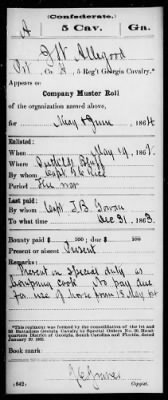 (Confederate.)
A 5 Cav. Ga.
J W Allegood
Pvt, Co. A, 5 Reg't Georgia Cavalry.*
Appears on
Company Muster Roll
of the organization named above,
for May & June, 1864.
Enlisted:
When May 19, 186
Where Bluff
By whom Capt
Period The war
Last paid:
By whom Capt. T.B.
To what time Dec 31, 1863.
Bounty paid $ 100; due $ 100
Present or absent Present
Remarks:
Present on Special duty as
Company cook No pay due
for use of horse from 15 May
*This regiment was formed by the consolidation of the 1st and
2d Battalions Georgia Cavalry by Special Orders No. 20, Head-
quarters District of Georgia, South Carolina and Florida, dated
January 20, 1863.
Book mark:
(642) Copyist.